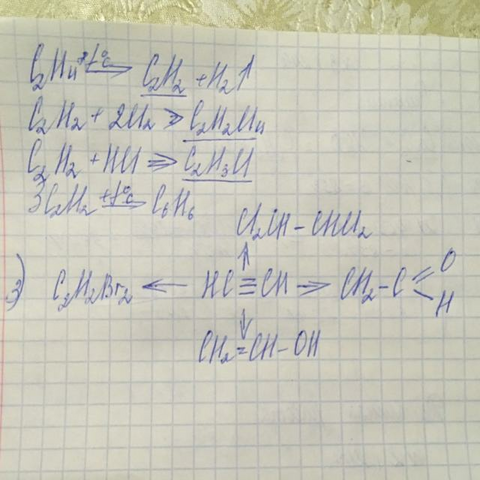 C₂H₄ +t°C→ C₂H₂ + H₂↑
C₂H₂ + 2Cl₂ ⇒ C₂H₂Cl₄
C₂H₂ + HCl ⇒ C₂H₃Cl
3C₂H₂ +t°C→ C₆H₆
Cl₂CH – CHCl₂
↑
3) C₂H₂Br₂ ← HC≡CH → CH₂–C
O
H
↓
CH₂=CH–OH